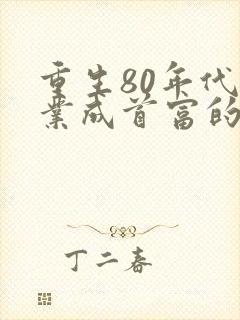 重生80年代
業成首富的
丁二春